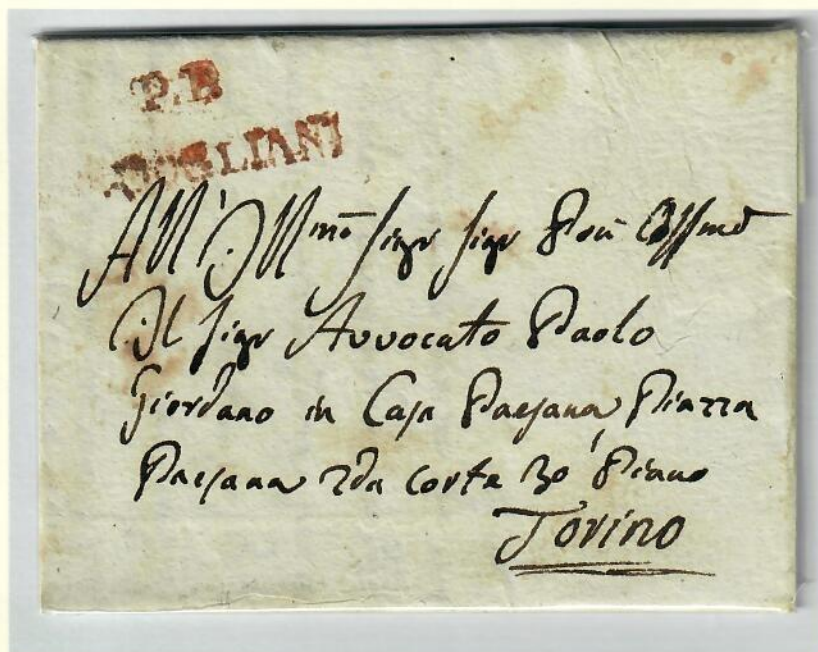 P.P.
DOGLIANI
All' Illmo Sigr Sigr Pon
Il Sigr Avvocato Paolo
Giordano in Casa Paesana, Piazza
Paesana 2da corte 3o Piano
Torino